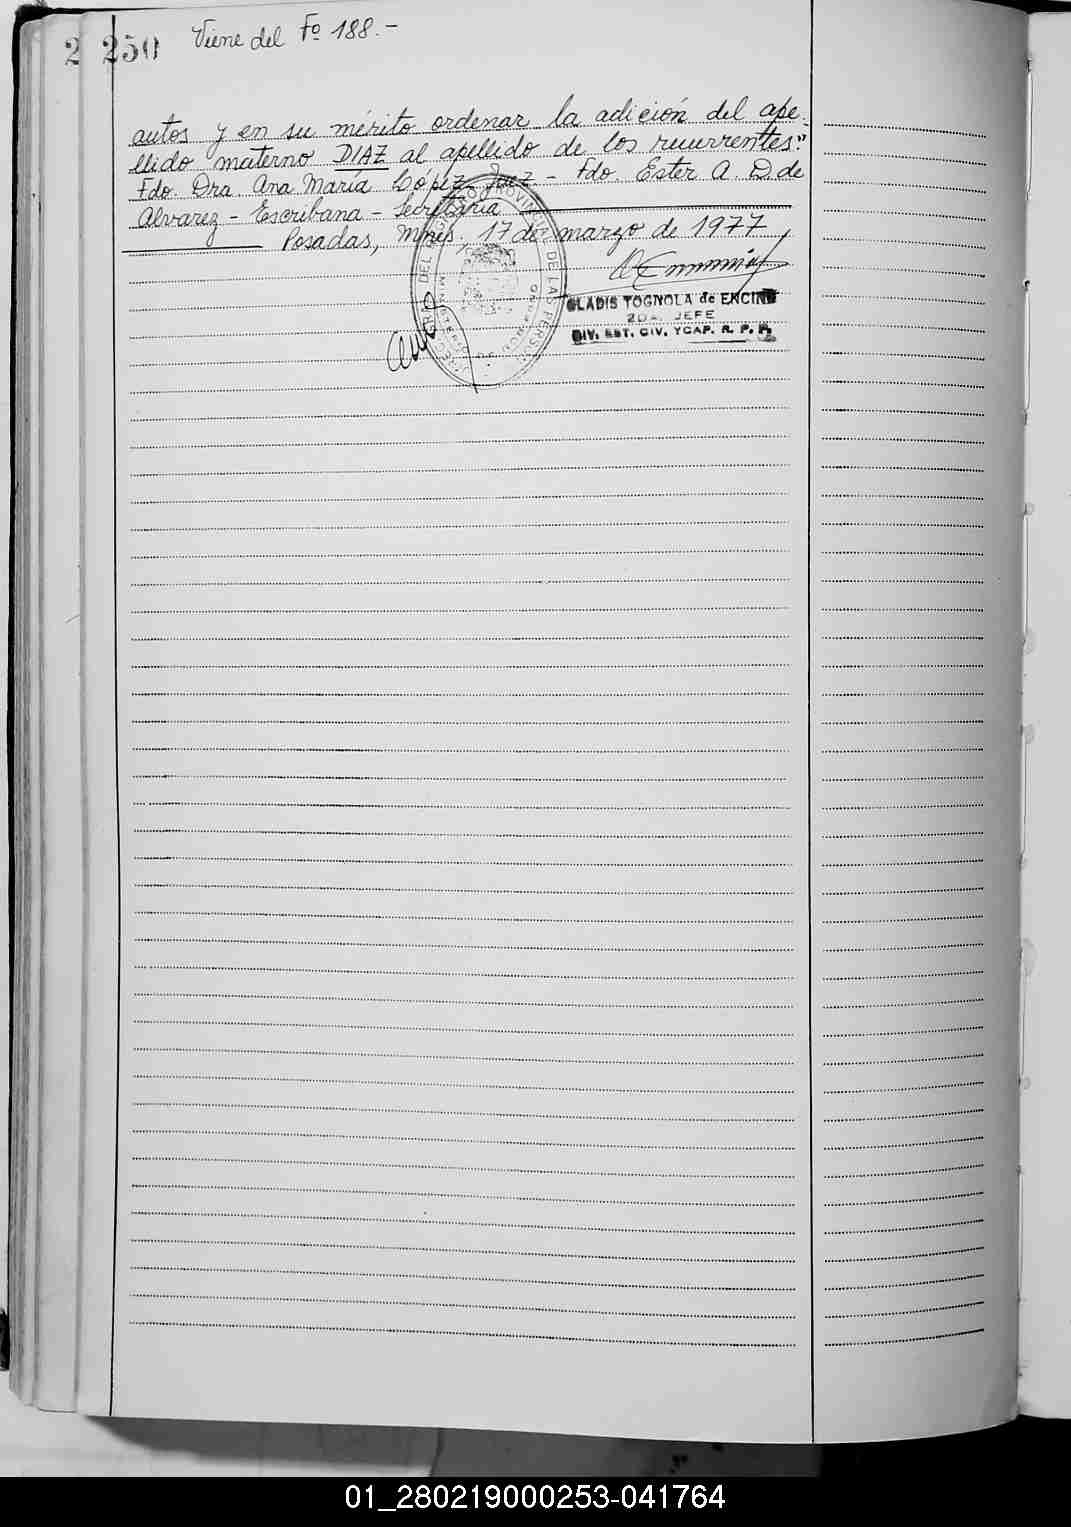 2 250 Viene del Fº 188.-
autos y en su mérito ordenar la adición del ape-
llido materno DIAZ al apellido de los recurrentes."
Fdo. Dra. Ana María López, Juez - Fdo. Ester A. D. de
Alvarez - Escribana - Secretaria
Posadas, Mnes. 17 de marzo de 1977
GLADIS TOGNOLA de ENCINO
2DA. JEFE
DIV. EST. CIV. Y CAP. R. P. P.
01_280219000253-041764